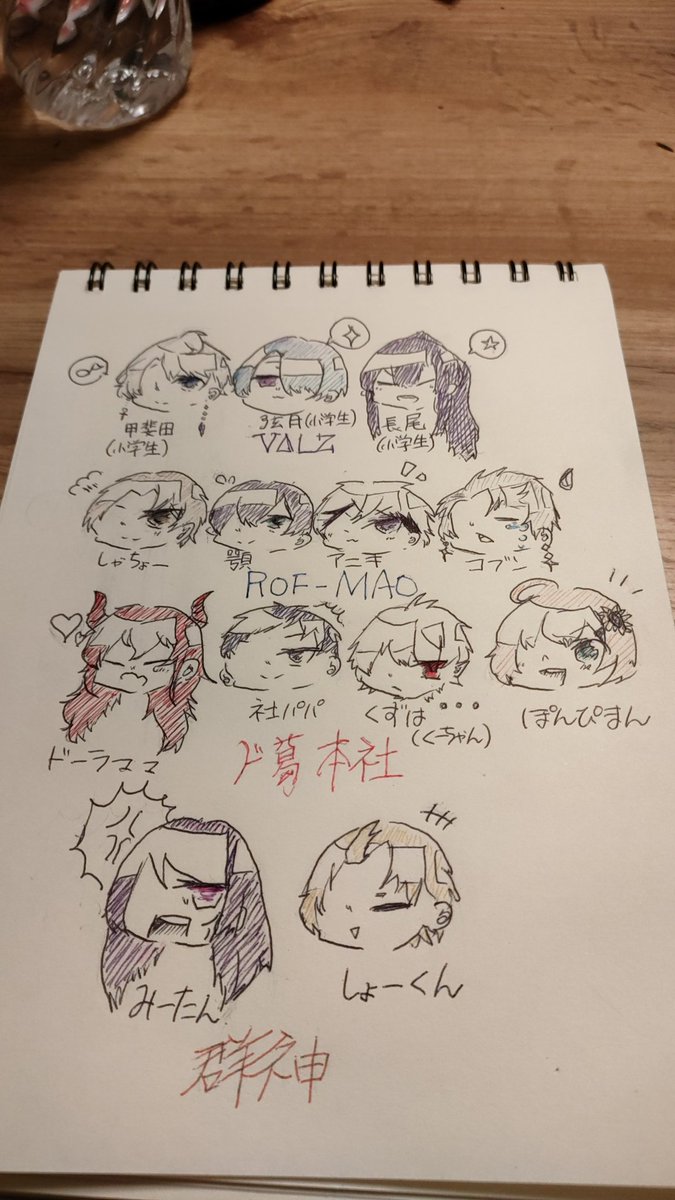 甲斐田
(小学生)
弦月(小学生)
長尾
(小学生)
VΔLZ
しゃちょー
顎
アニキ
コブン
ROF-MAO
ドーラママ
社パパ
くずは
(くーちゃん)
ぽんぴまん
ド葛本社
みーたん
しょーくん
群神